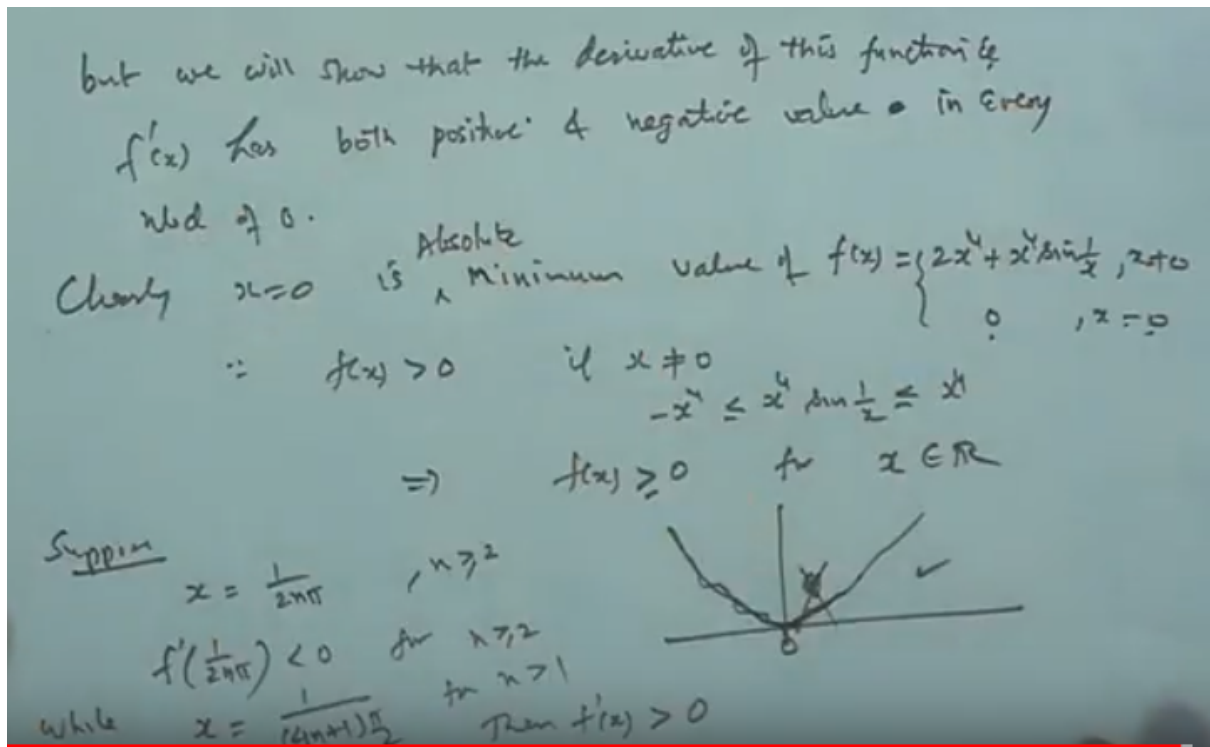 but we will show that the derivative of this function is
f'(x) has both positive & negative value in Every
nbd of 0.
Absolute
Clearly x=0 is ∧ Minimum value of f(x) = { 2x⁴ + x⁴ sin 1/x , x≠0
0 , x=0
∵ f(x) > 0 if x ≠ 0
-x⁴ ≤ x⁴ sin 1/x ≤ x⁴
⇒ f(x) ≥ 0 for x ∈ ℝ
Suppose
x = 1/2nπ , n ≥ 2
f'(1/2nπ) < 0 for n ≥ 2
while x = 1/(4n+1)π/2 for n > 1 Then f'(x) > 0
0